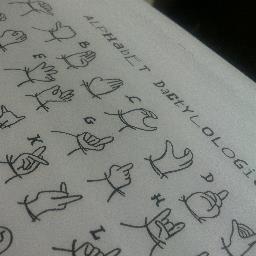 ALPHABET DACTYLOLOGI
B
C
F
G
D
K
H
L